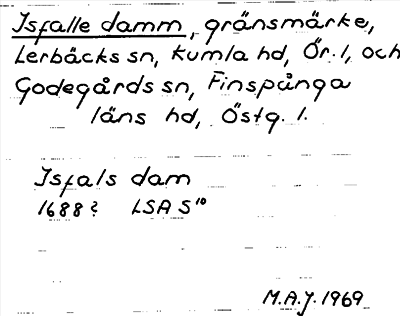 Isfalle damm, gränsmärke,
Lerbäcks sn, Kumla hd, Ör. l, och
Godegårds sn, Finspånga
läns hd, Östg. l.
Isfals dam
1688? LSA S¹⁰
M.A.J. 1969